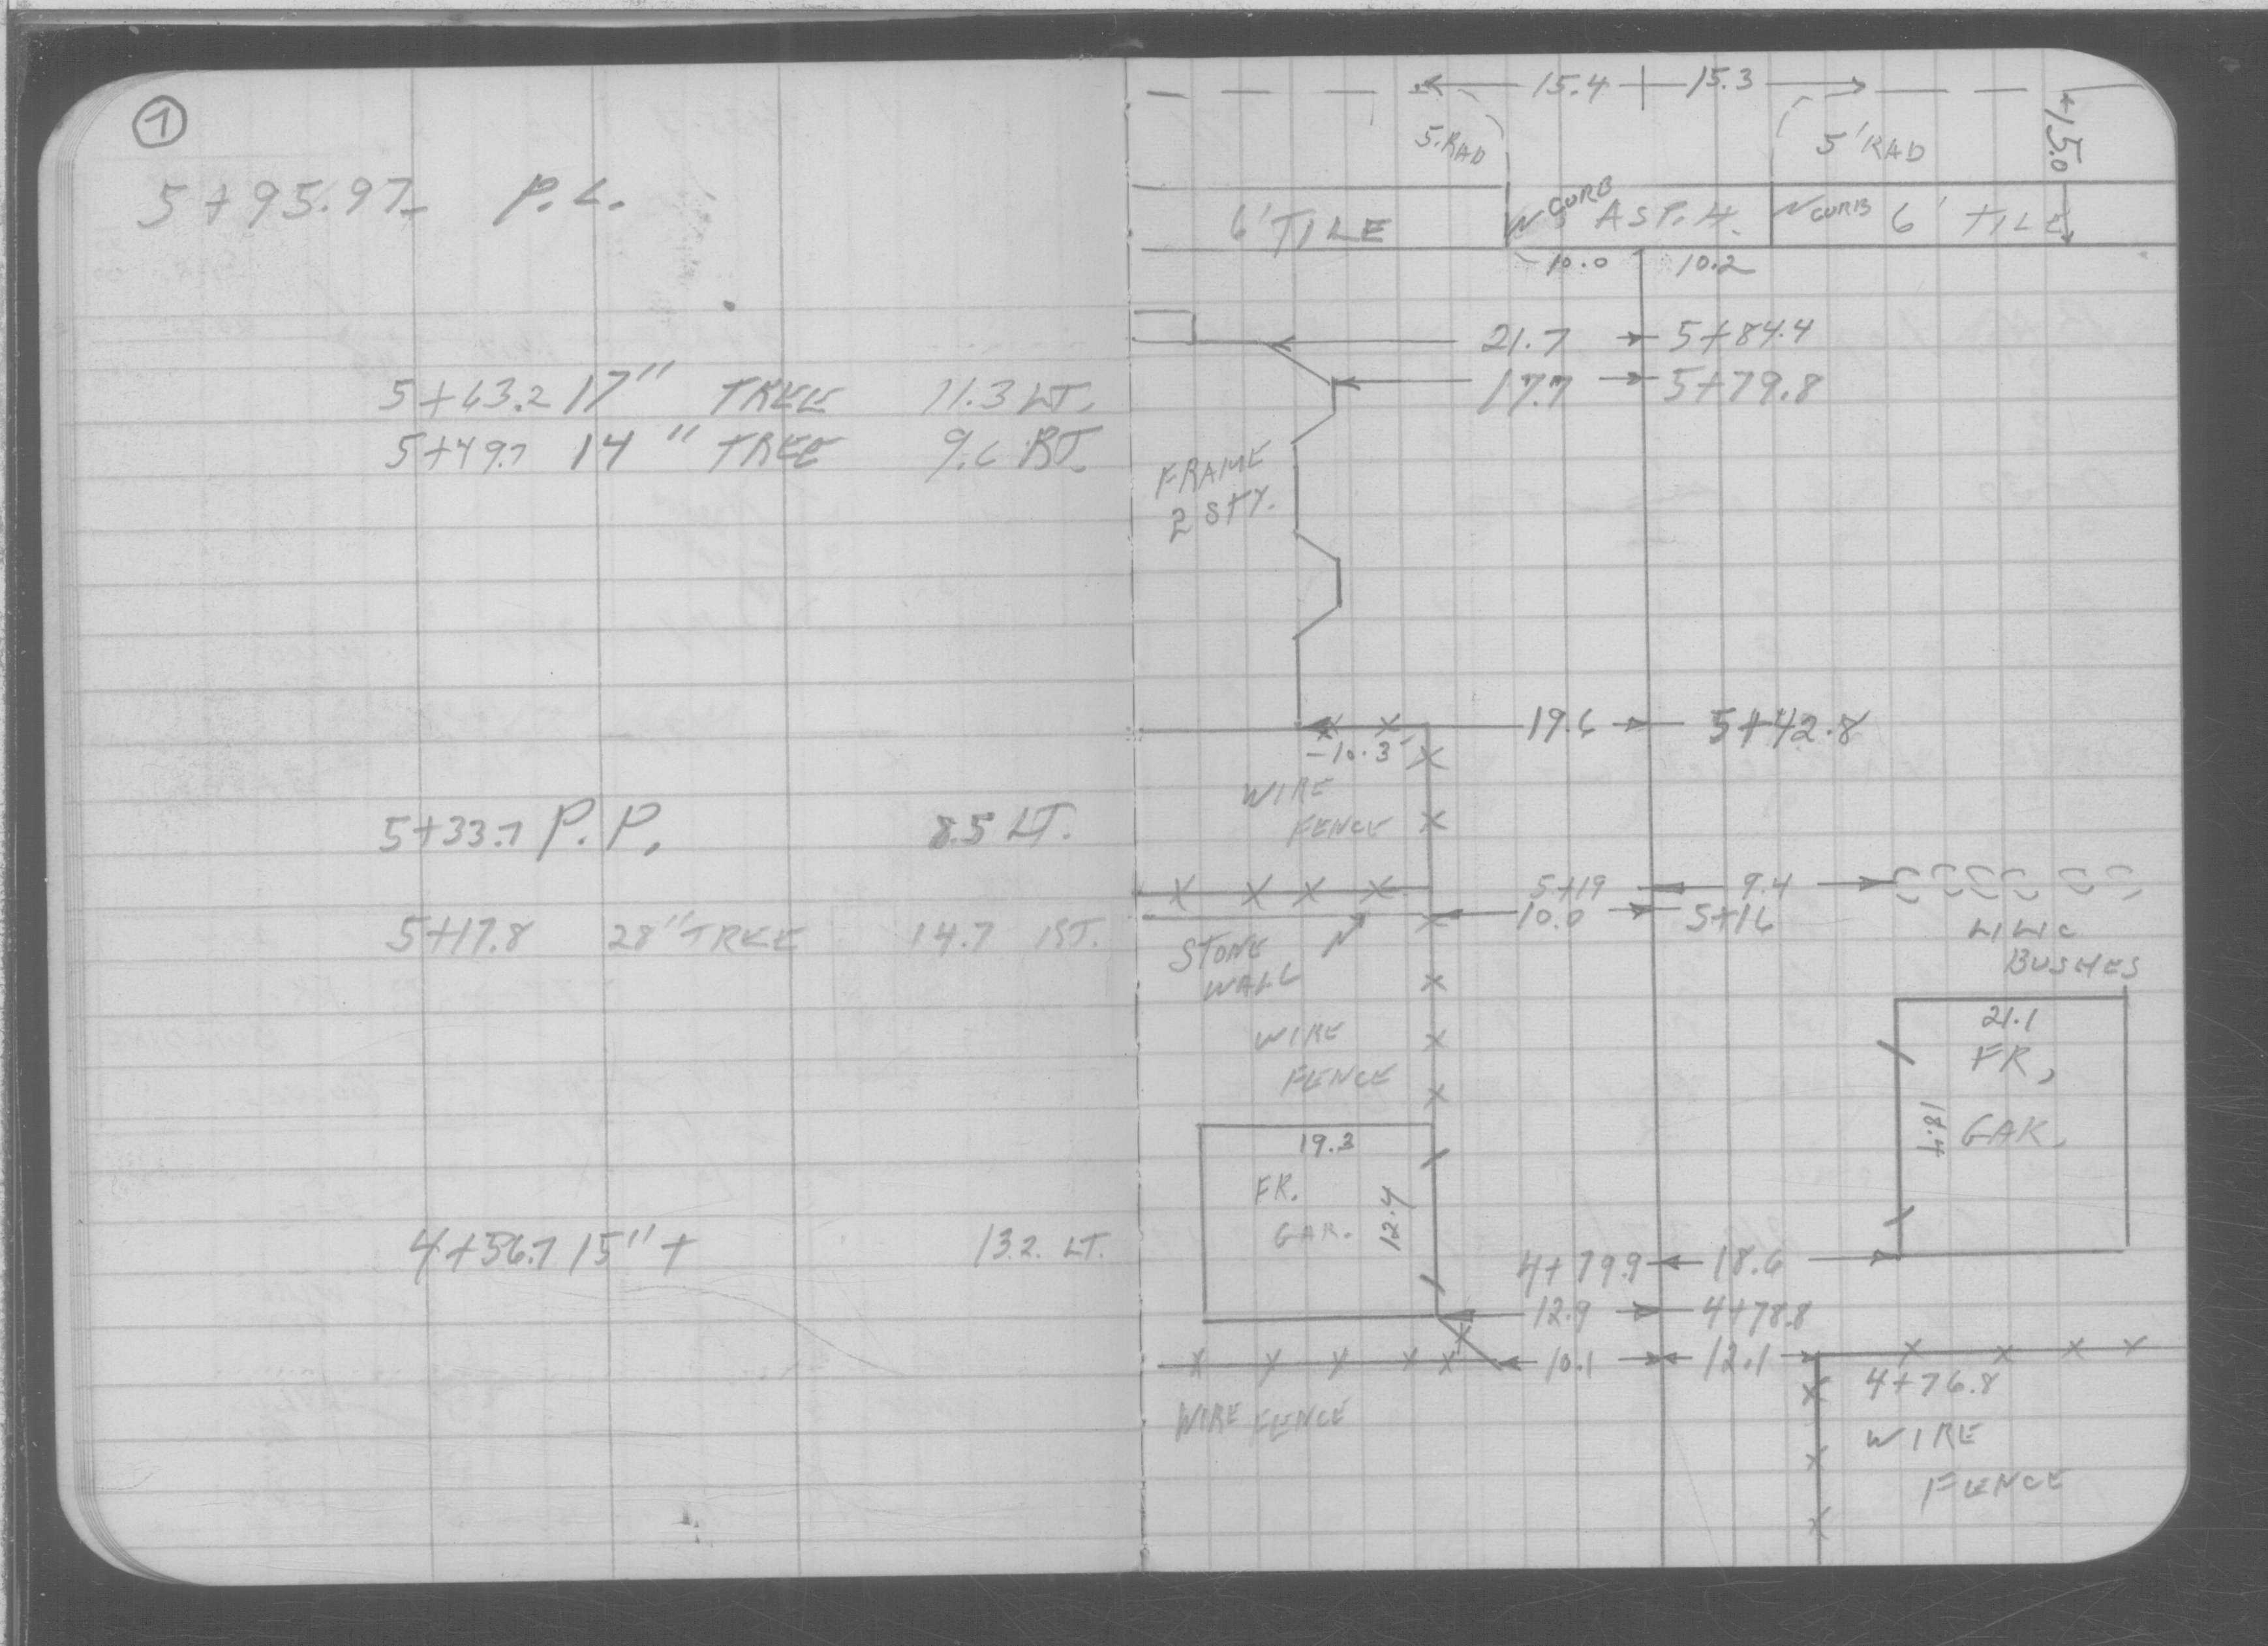 1
5+95.97 P.L.
5+63.2 17" TREE 11.3 LT.
5+49.7 14" TREE 9.6 RT.
5+33.7 P.P. 8.5 LT.
5+17.8 28" TREE 14.7 RT.
4+56.7 15" + 13.2. LT.
15.4 15.3
5.RAD 5'RAD 15.0
6'TILE CURB ASP.H. CURB 6' TILE
10.0 10.2
21.7 5+84.4
17.7 5+79.8
FRAME
2 STY.
19.6 5+42.8
10.3
WIRE
FENCE
5+19 9.4
10.0 5+16
LILIC
BUSHES
STONE
WALL
WIRE
FENCE
21.1
FR,
GAR.
18.4
19.3
FR.
GAR.
12.4
4+79.9 18.6
12.9 4+78.8
10.1 12.1
4+76.8
WIRE FENCE
WIRE
FENCE